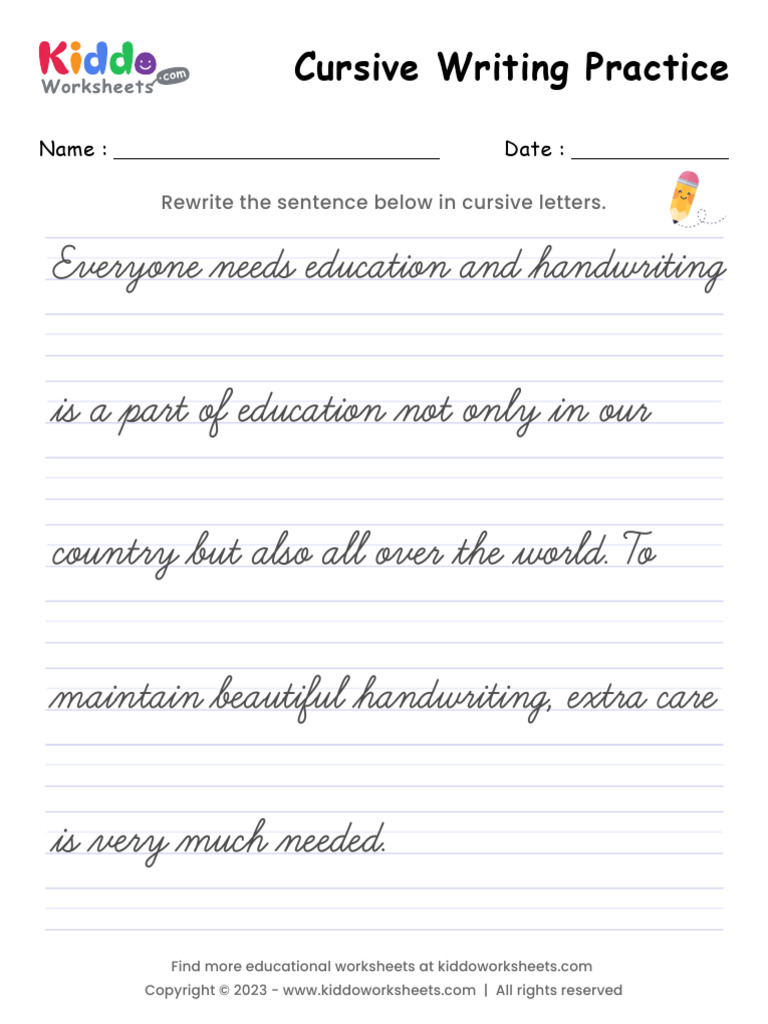 Kiddo
Worksheets.com
Cursive Writing Practice
Name : Date :
Rewrite the sentence below in cursive letters.
Everyone needs education and handwriting
is a part of education not only in our
country but also all over the world. To
maintain beautiful handwriting, extra care
is very much needed.
Find more educational worksheets at kiddoworksheets.com
Copyright © 2023 - www.kiddoworksheets.com | All rights reserved